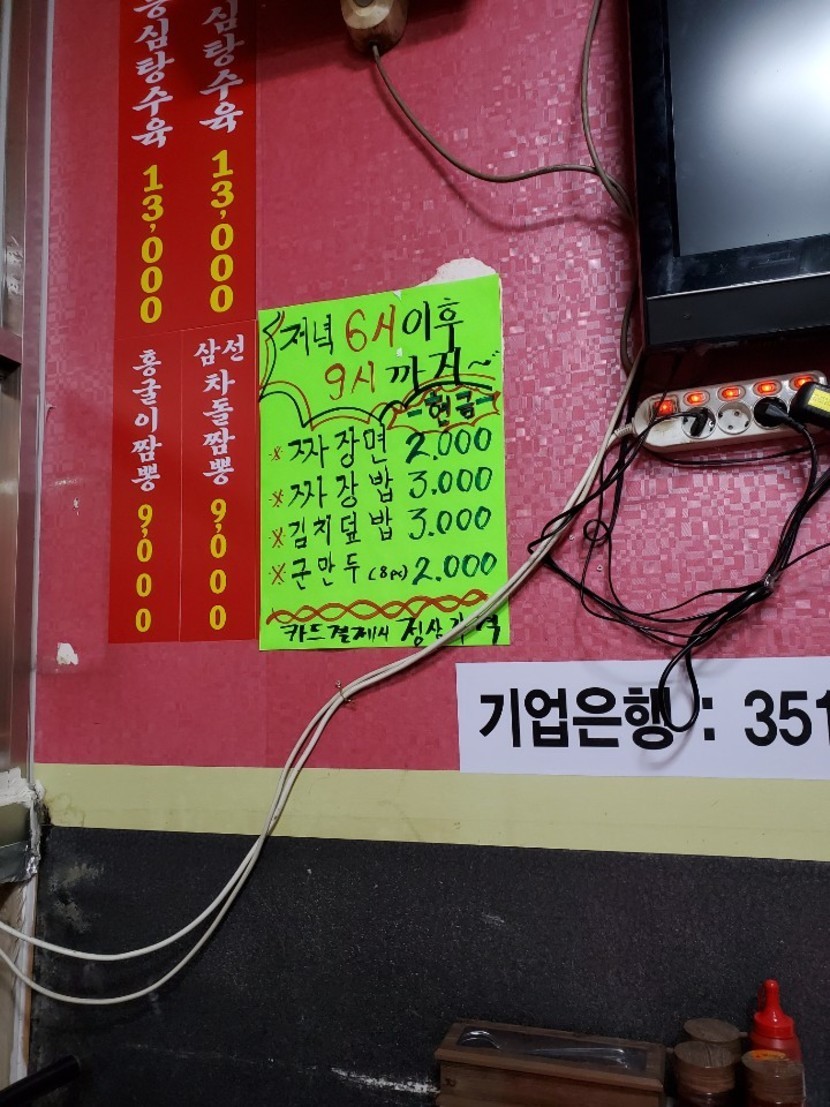 홍심탕수육 13,000
심탕수육 13,000
홍굴이짬뽕 9,000
삼선
차돌짬뽕 9,000
저녁 6시이후
9시 까지~
-현금-
※ 짜장면 2.000
※ 짜장밥 3.000
※ 김치덮밥 3.000
※ 군만두 (8pc) 2.000
카드결제시 정상가격
기업은행 : 351